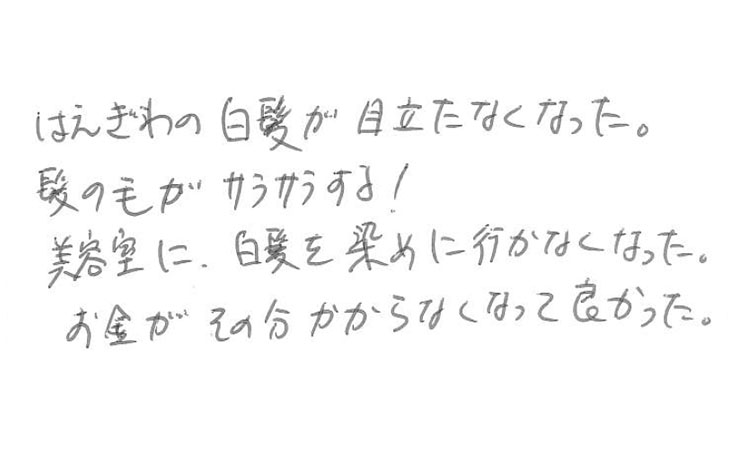 はえぎわの白髪が目立たなくなった。
髪の毛がサラサラする！
美容室に、白髪を染めに行かなくなった。
お金がその分かからなくなって良かった。